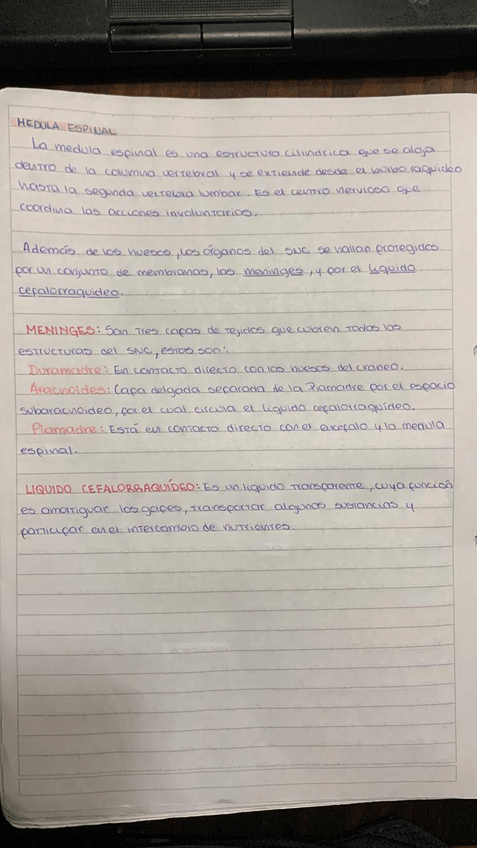 MEDULA ESPINAL
La medula espinal es una estructura cilindrica que se aloja
dentro de la columna vertebral y se extiende desde el bulbo raquideo
hasta la segunda vertebra lumbar. Es el centro nervioso que
coordina las acciones involuntarias.
Además de los huesos, los órganos del SNC se hallan protegidos
por un conjunto de membranas, las meninges, y por el liquido
cefalorraquideo.
MENINGES: Son tres capas de tejidos que cubren todas las
estructuras del SNC, estas son:
Duramadre: En contacto directo con los huesos del craneo.
Aracnoides: Capa delgada separada de la Piamadre por el espacio
subaracnoideo, por el cual circula el liquido cefalorraquídeo.
Piamadre: Está en contacto directo con el encefalo y la medula
espinal.
LIQUIDO CEFALORRAQUÍDEO: Es un liquido transparente, cuya función
es amortiguar los golpes, transportar algunas sustancias y
participar en el intercambio de nutrientes.